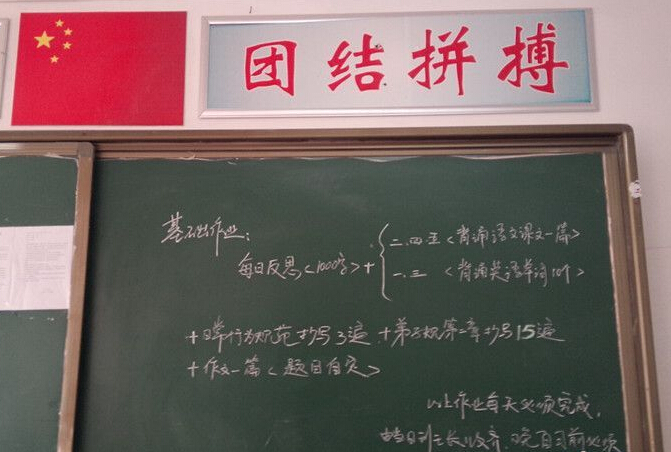 团结拼搏
基础作业:
每日反思<1000字>+
二.四.五<背诵语文课文一篇>
一.三 <背诵英语单词10个>
+日常行为规范抄写3遍+弟子规第二章抄写15遍
+作文一篇<题目自定>
以上作业每天必须完成,
由当日班长收齐,晚自习前必须